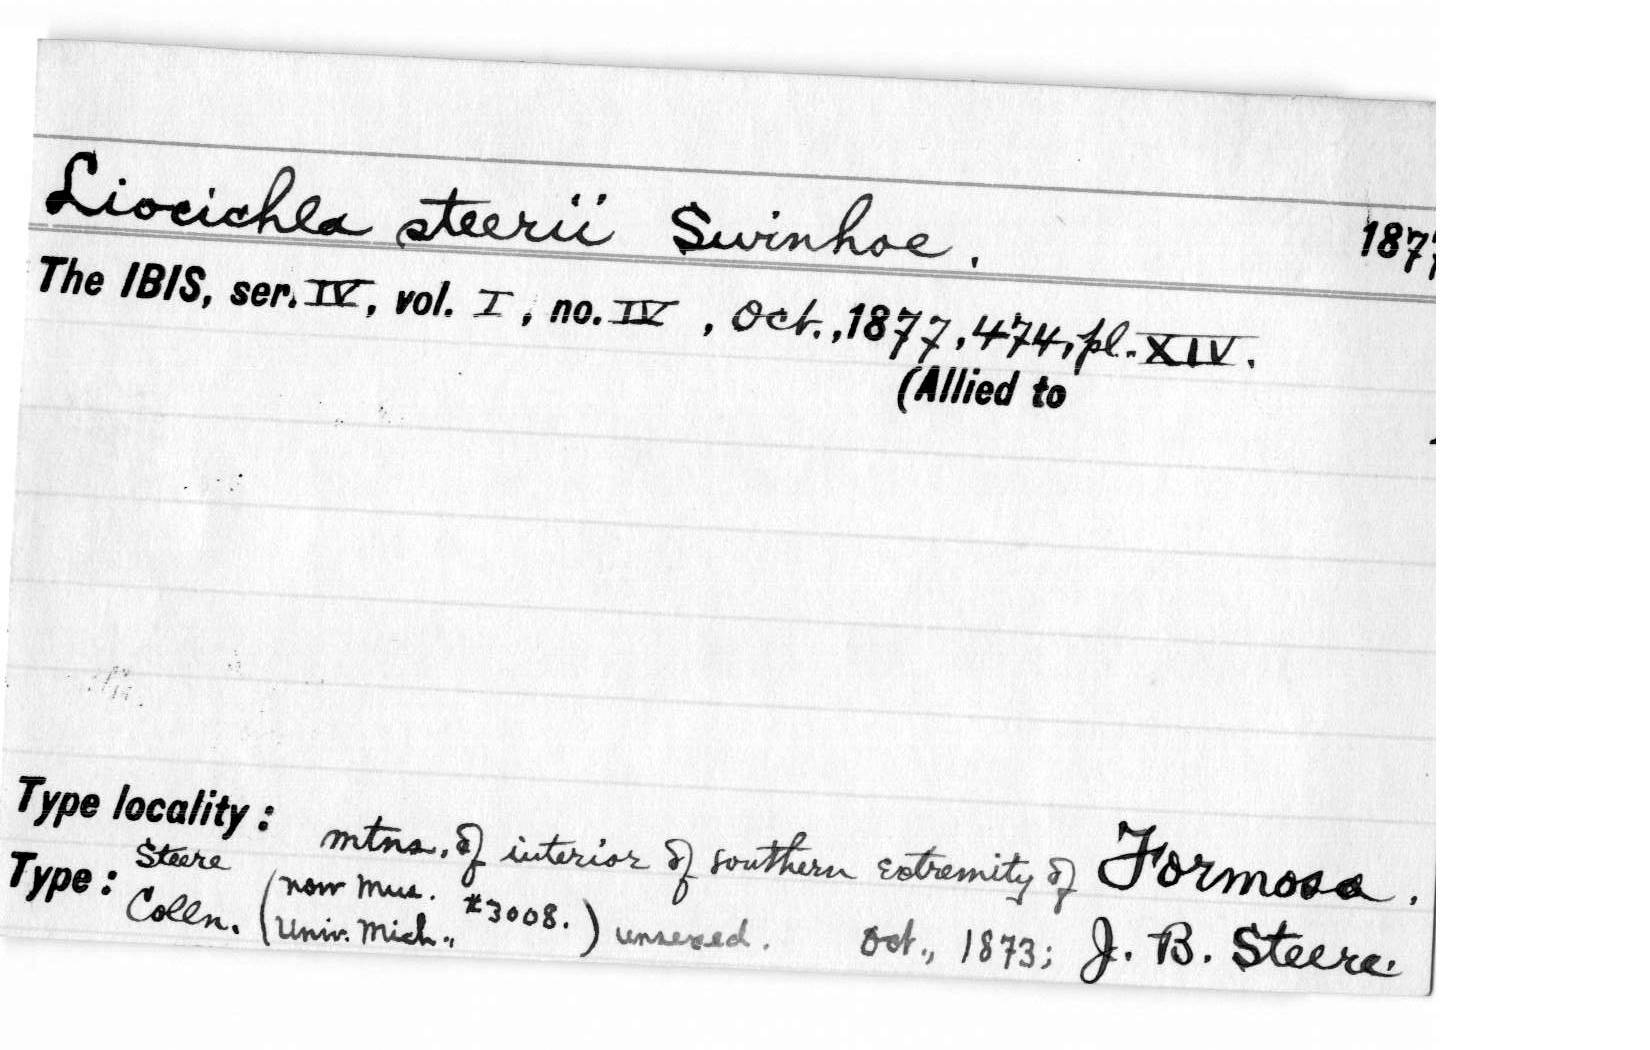 Liocichla steerii Swinhoe. 1877
The IBIS, ser. IV, vol. I, no. IV, Oct., 1877, 474, pl. XIV.
(Allied to
Type locality: mtns. of interior of southern extremity of Formosa.
Type: Steere Colln. (now Mus. Univ. Mich., #3008.) unsexed. Oct., 1873; J. B. Steere.